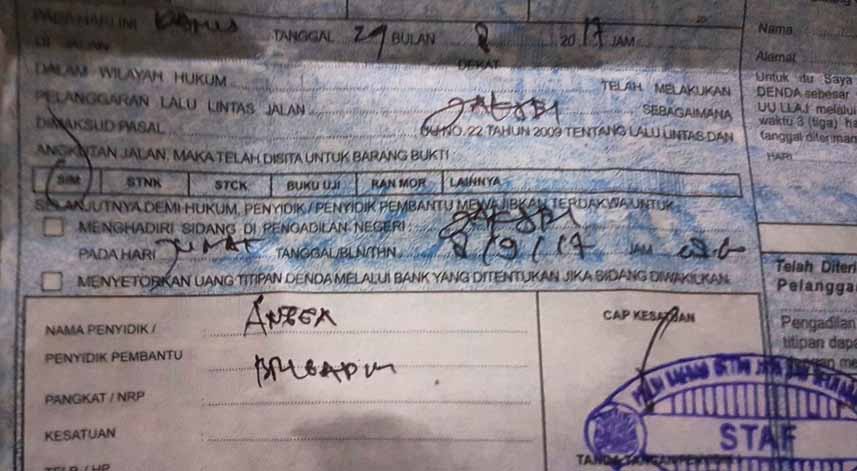 PADA HARI INI KAMIS TANGGAL 29 BULAN 8 2017 JAM
DI JALAN DEKAT
DALAM WILAYAH HUKUM TELAH MELAKUKAN
PELANGGARAN LALU LINTAS JALAN SEBAGAIMANA
DIMAKSUD PASAL UU NO. 22 TAHUN 2009 TENTANG LALU LINTAS DAN
ANGKUTAN JALAN, MAKA TELAH DISITA UNTUK BARANG BUKTI
SIM STNK STCK BUKU UJI RAN MOR LAINNYA
SELANJUTNYA DEMI HUKUM, PENYIDIK / PENYIDIK PEMBANTU MEWAJIBKAN TERDAKWA UNTUK
MENGHADIRI SIDANG DI PENGADILAN NEGERI
PADA HARI JUMAT TANGGAL/BLN/THN 8/9/17 JAM
MENYETORKAN UANG TITIPAN DENDA MELALUI BANK YANG DITENTUKAN JIKA SIDANG DIWAKILKAN
NAMA PENYIDIK /
PENYIDIK PEMBANTU
PANGKAT / NRP
KESATUAN
TELP / HP
CAP KESATUAN
STAF
Nama
Alamat
Untuk du Saya
DENDA sebesar
UU LLAJ melalui
waktu 3 (tiga) ha
tanggal diterima
HARI
Telah Diteri
Pelangga
Pengadilan
titipan dapa